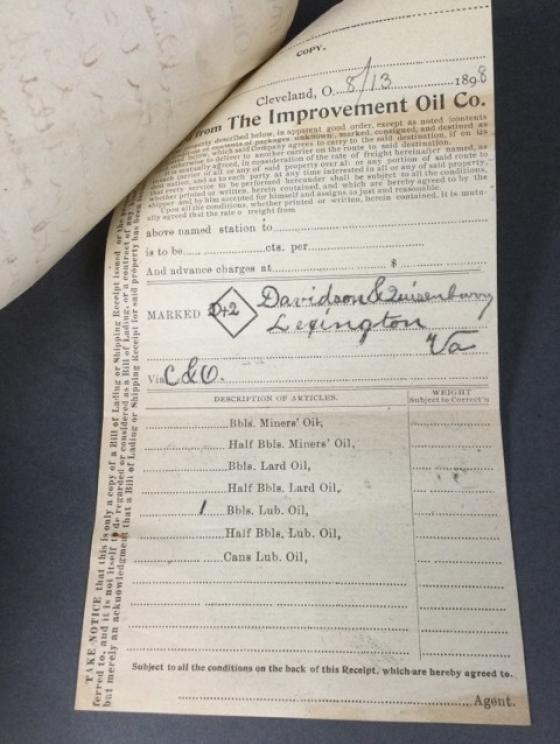 COPY.
Cleveland, O. 8/13 1898
from The Improvement Oil Co.
property described below, in apparent good order, except as noted (contents
and condition of contents of packages unknown), marked, consigned, and destined as
below, which said Company agrees to carry to the said destination, if on its
otherwise to deliver to another carrier on the route to said destination.
It is mutually agreed, in consideration of the rate of freight hereinafter named, as
each carrier of all or any of said property over all or any portion of said route to
destination, and as to each party at any time interested in all or any of said property,
every service to be performed hereunder shall be subject to all the conditions,
whether printed or written, herein contained, and which are hereby agreed to by the
shipper and by him accepted for himself and assigns as just and reasonable.
Upon all the conditions, whether printed or written, herein contained, it is mutu-
ally agreed that the rate o freight from
above named station to
is to be cts. per
And advance charges at $
MARKED D+2 Davidson & Quisenburry
Lexington
Va
Via C&O.
DESCRIPTION OF ARTICLES. WEIGHT
Subject to Correct'n
Bbls. Miners' Oil,
Half Bbls. Miners' Oil,
Bbls. Lard Oil,
Half Bbls. Lard Oil,
1 Bbls. Lub. Oil,
Half Bbls. Lub. Oil,
Cans Lub. Oil,
Subject to all the conditions on the back of this Receipt, which are hereby agreed to.
Agent.
TAKE NOTICE that this is only a copy of a Bill of Lading or Shipping Receipt issued
ferred to, and it is not itself to be regarded or considered as a Bill of Lading, or a contract of any
but merely an acknowledgment that a Bill of Lading or Shipping Receipt for said property has been